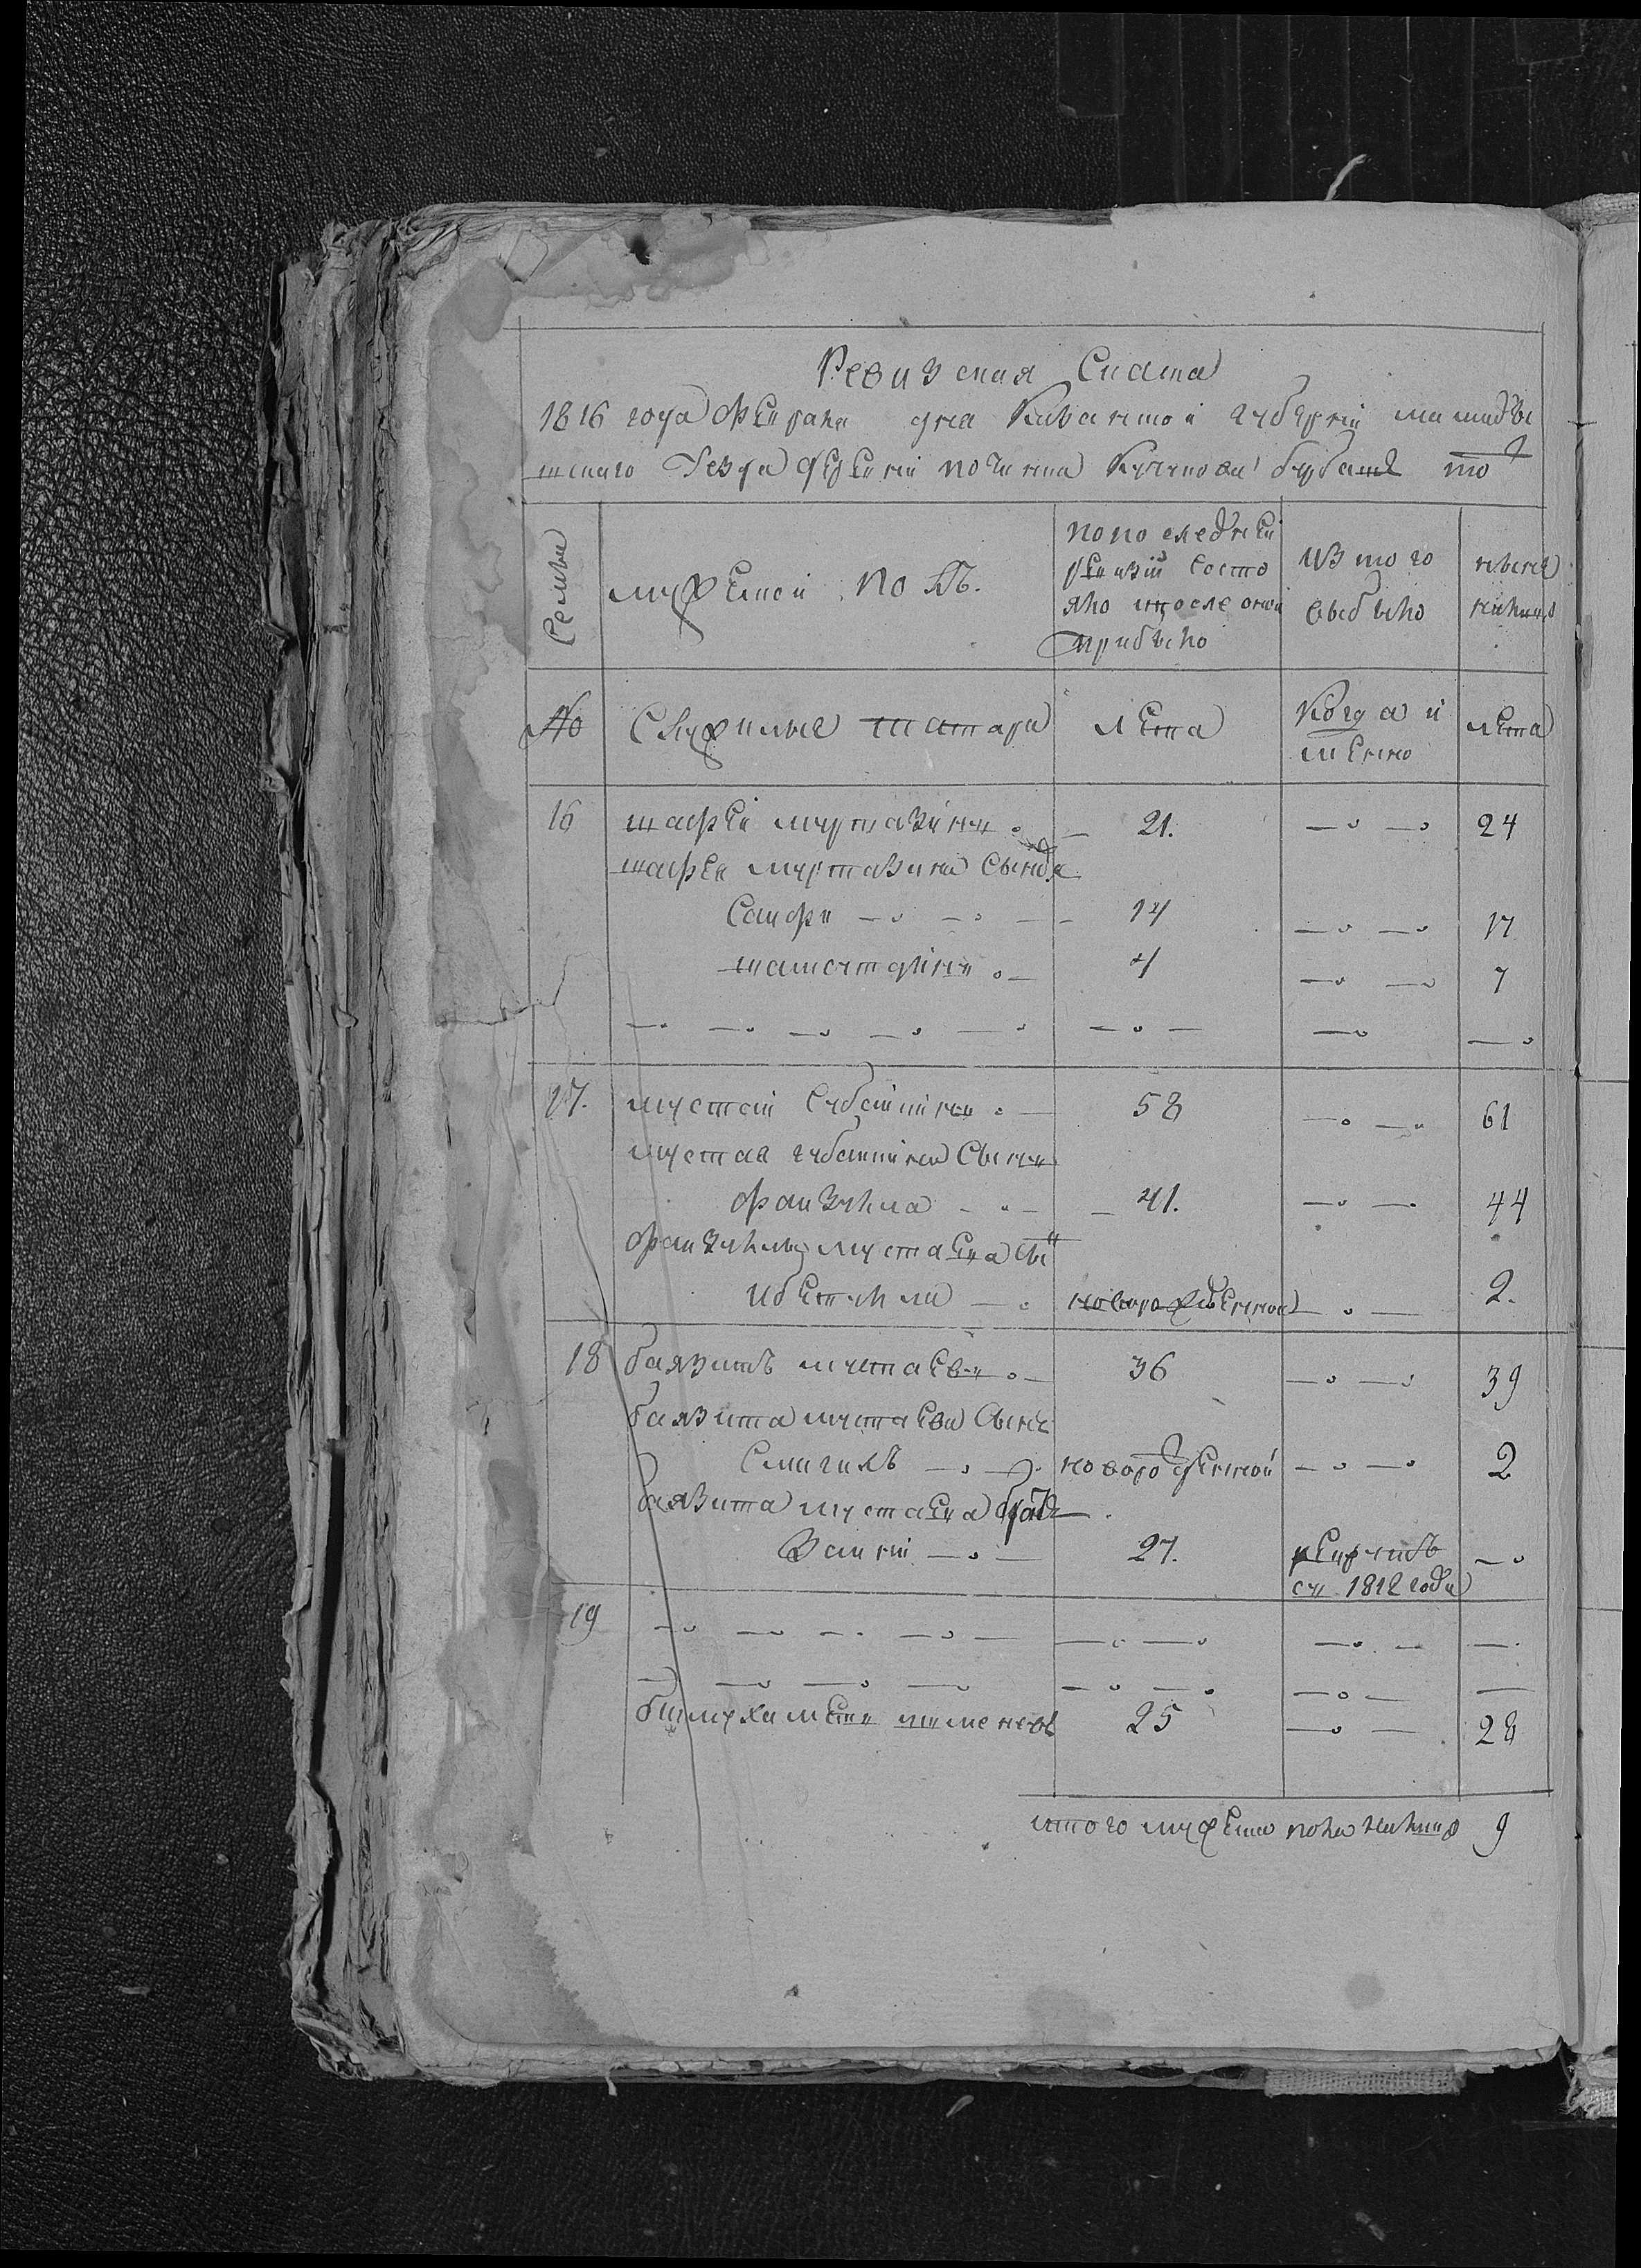 Ревизская Сказка
1816 года февраля дня Казанской губернии мамады
шскаго уезда деревни починка Кучукова бурбаш то
Семьи
мужеской полъ.
по последней
ревизіи состо
яло и после оной
прибыло
из того
выбыло
ныне
налицо
№
Служилые татара
лета
Когда и
имено
лета
16 шафеи муртазинъ 21. 24
шафея муртазина Сынов
Саифи 14 17
шамсутдинъ 4 7
17. мустаи субаинъ 58 61
мустая субаина Сынъ
фаизулла 41. 44
фаизуллы мустаева сы
Ибетулла новорожденной 2.
18 баязитъ мустаевъ 36 39
баязита мустаева Сынъ
Смагилъ новорожденной 2
баязита мустаева братъ
Заини 27. рекрутъ
съ 1812 года
19
бикмухаметъ 25 28
итого мужеска пола налицо 9